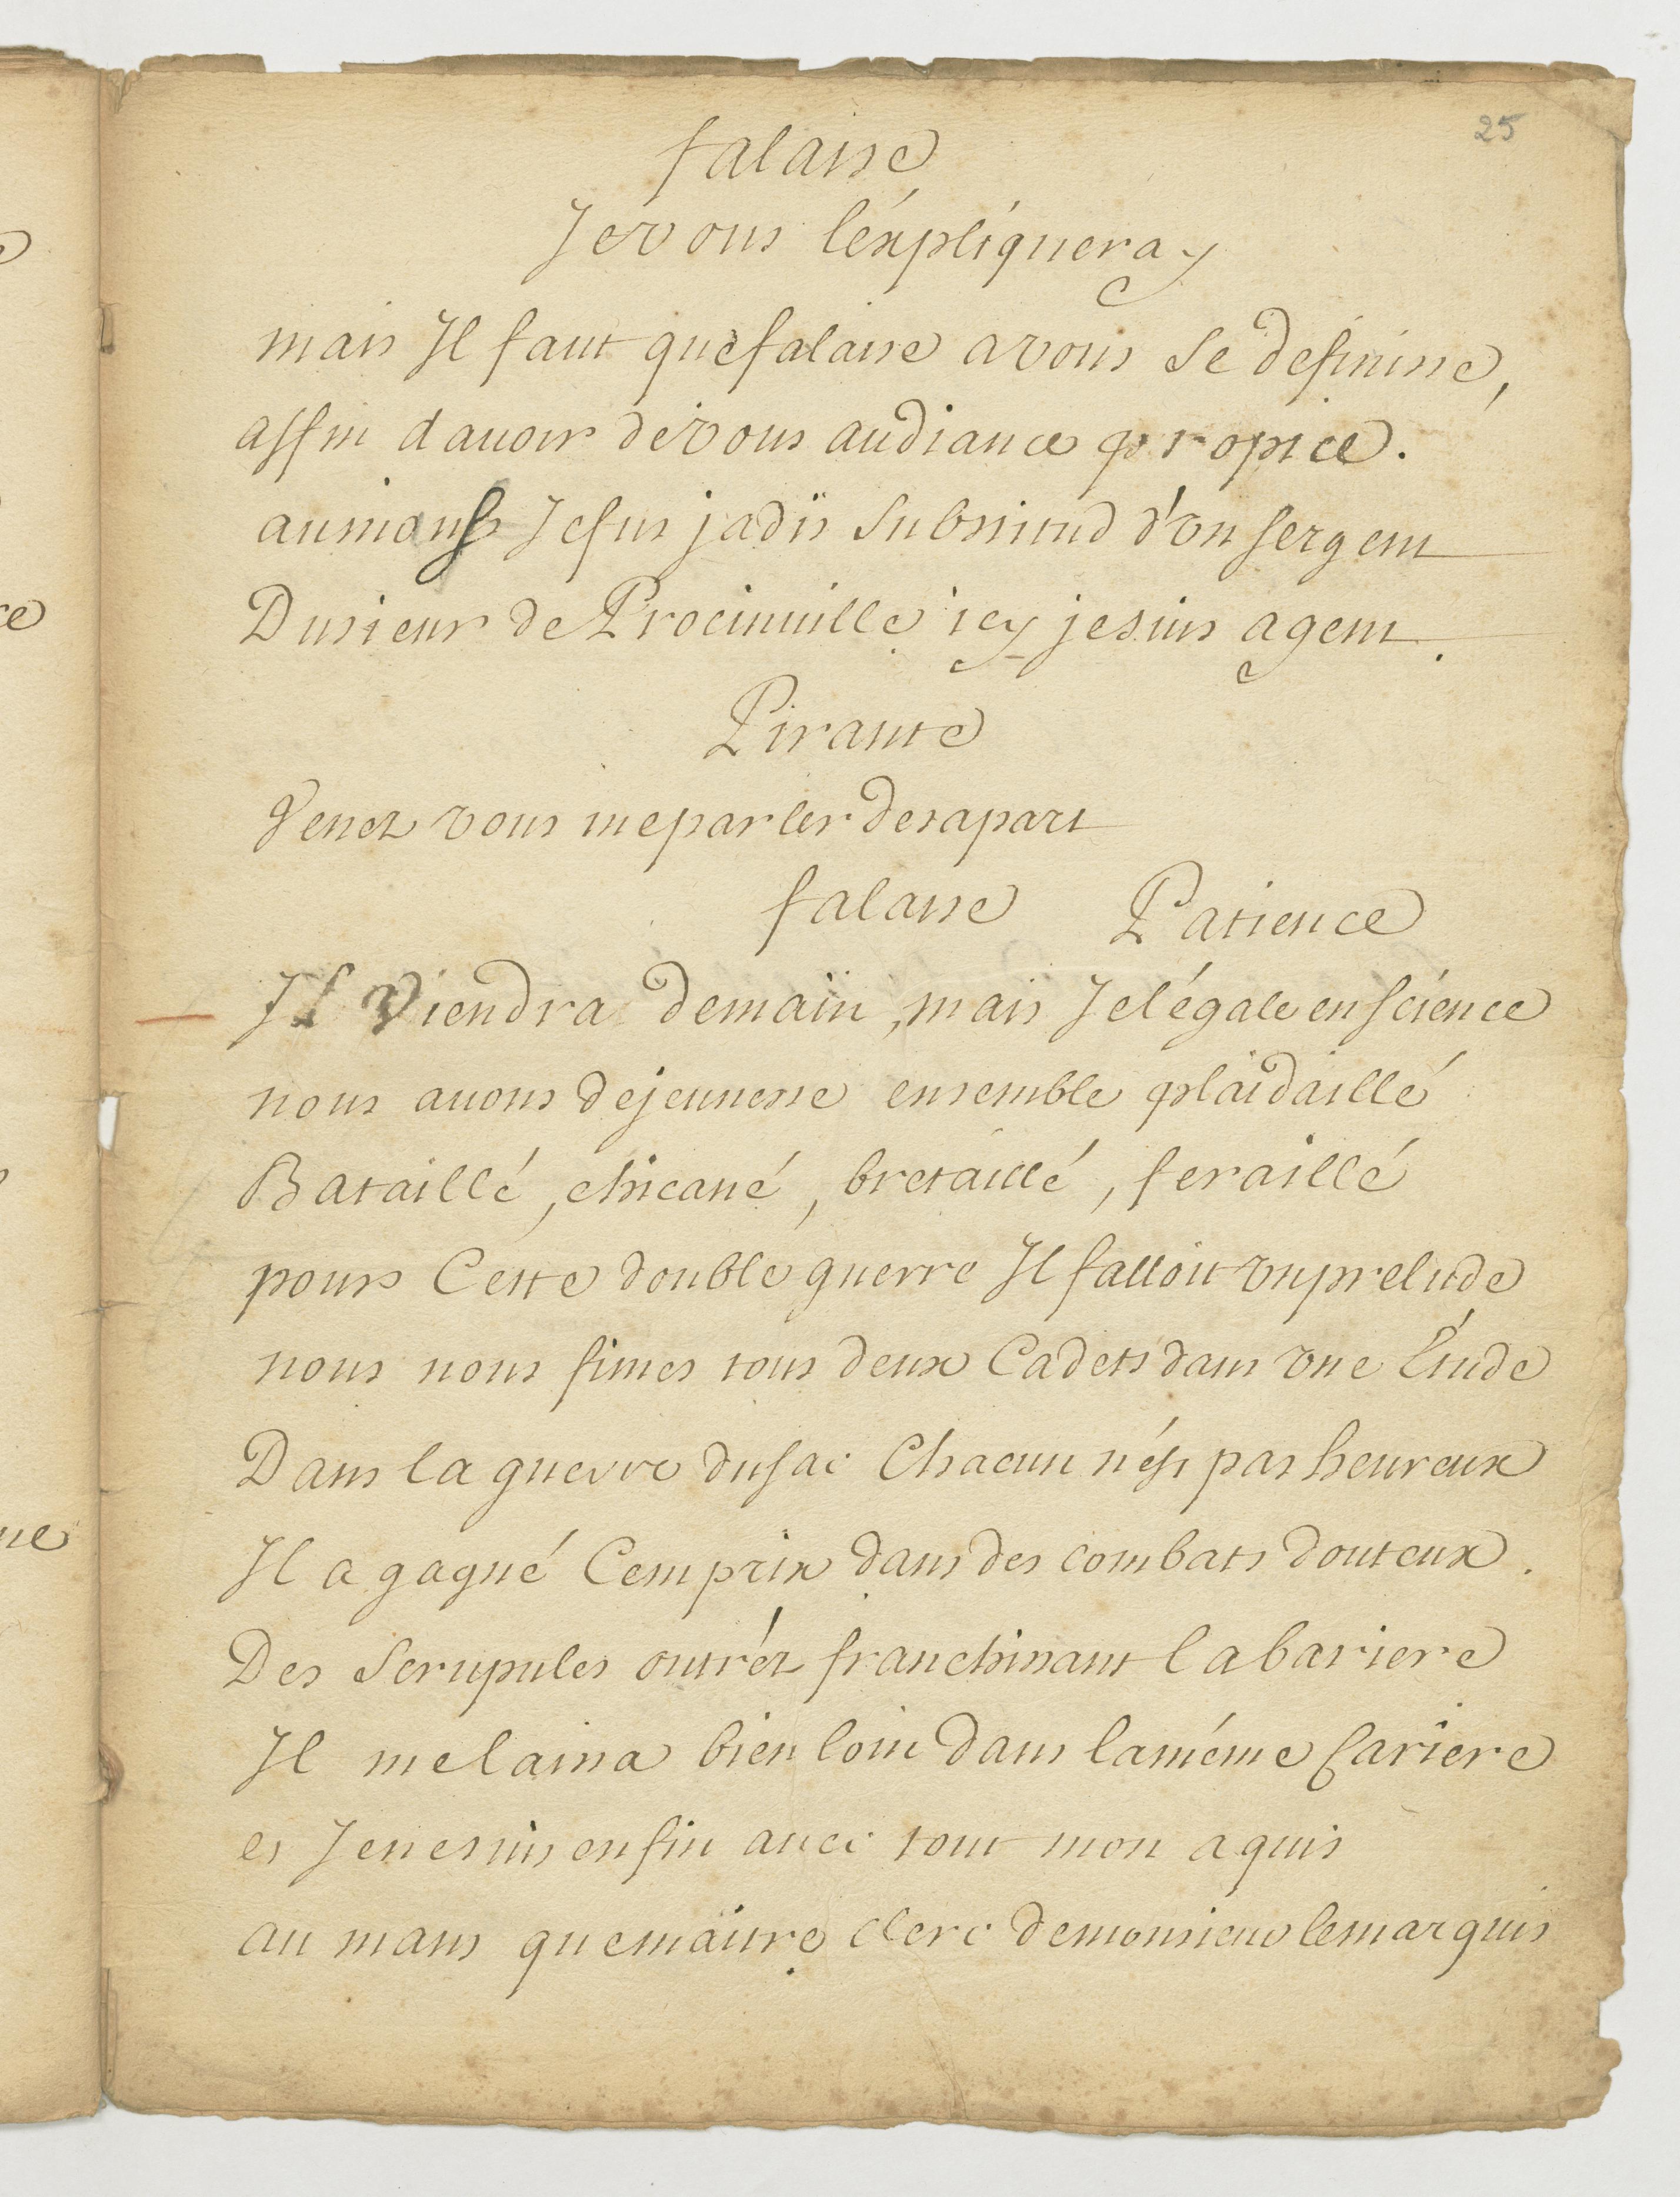 25
falaise
Je vous léxpliqueray
mais Il faut que falaise a vous se definisse,
affin d'auoir de vous audiance propice.
au mans Je fus jadis substitud d'vn sergent
Du sieur de Procinuille icy je suis agent.
Pirante
Venez vous me parler de sa part
falaise Patience
Il viendra demain, mais Je l'égale en science
nous auons de jeunesse ensemble plaidaillé
Bataillé, chicané, bretaillé, feraillé
pour Cette double guerre Il falloit vn prelude
nous nous fimes tous deux Cadets dans vne Étude
Dans la guerre du sac Chacun n'ést pas heureux
Il a gagné Cent prix dans des combats douteux.
Des scrupules outréz franchissant la bariere
Il me laissa bien loin dans la méme Cariere
et Je ne suis enfin auec tout mon aquis
au mans que maitre clerc de monsieur le marquis